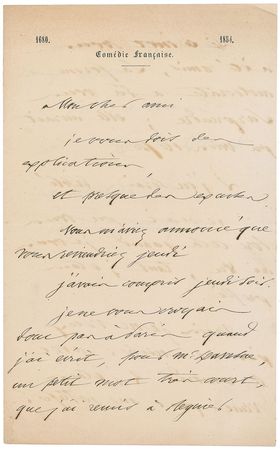 1680.
1884.
Comédie Française.
Mon cher ami
je vous dois des
explications,
et presque des excuses.
Vous m'aviez annoncé que
vous reviendriez jeudi
j'avais compris jeudi soir.
je ne vous croyais
donc pas à Paris quand
j'ai écrit, pour Mr
un petit mot très court,
que j'ai remis à